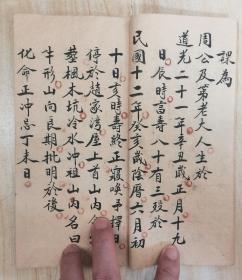 課為
周公及第老大人生於
道光二十一年辛丑歲正月十九
日辰時富壽八十有三歿於
民國十二年癸亥歲陰曆六月初
十日亥時壽終正寢喚予擇日
停於趙家灣屋上首山內
塟楓木坑冷水冲祖山內名曰
牛形山向良期批明於後
化命正冲忌丁未日